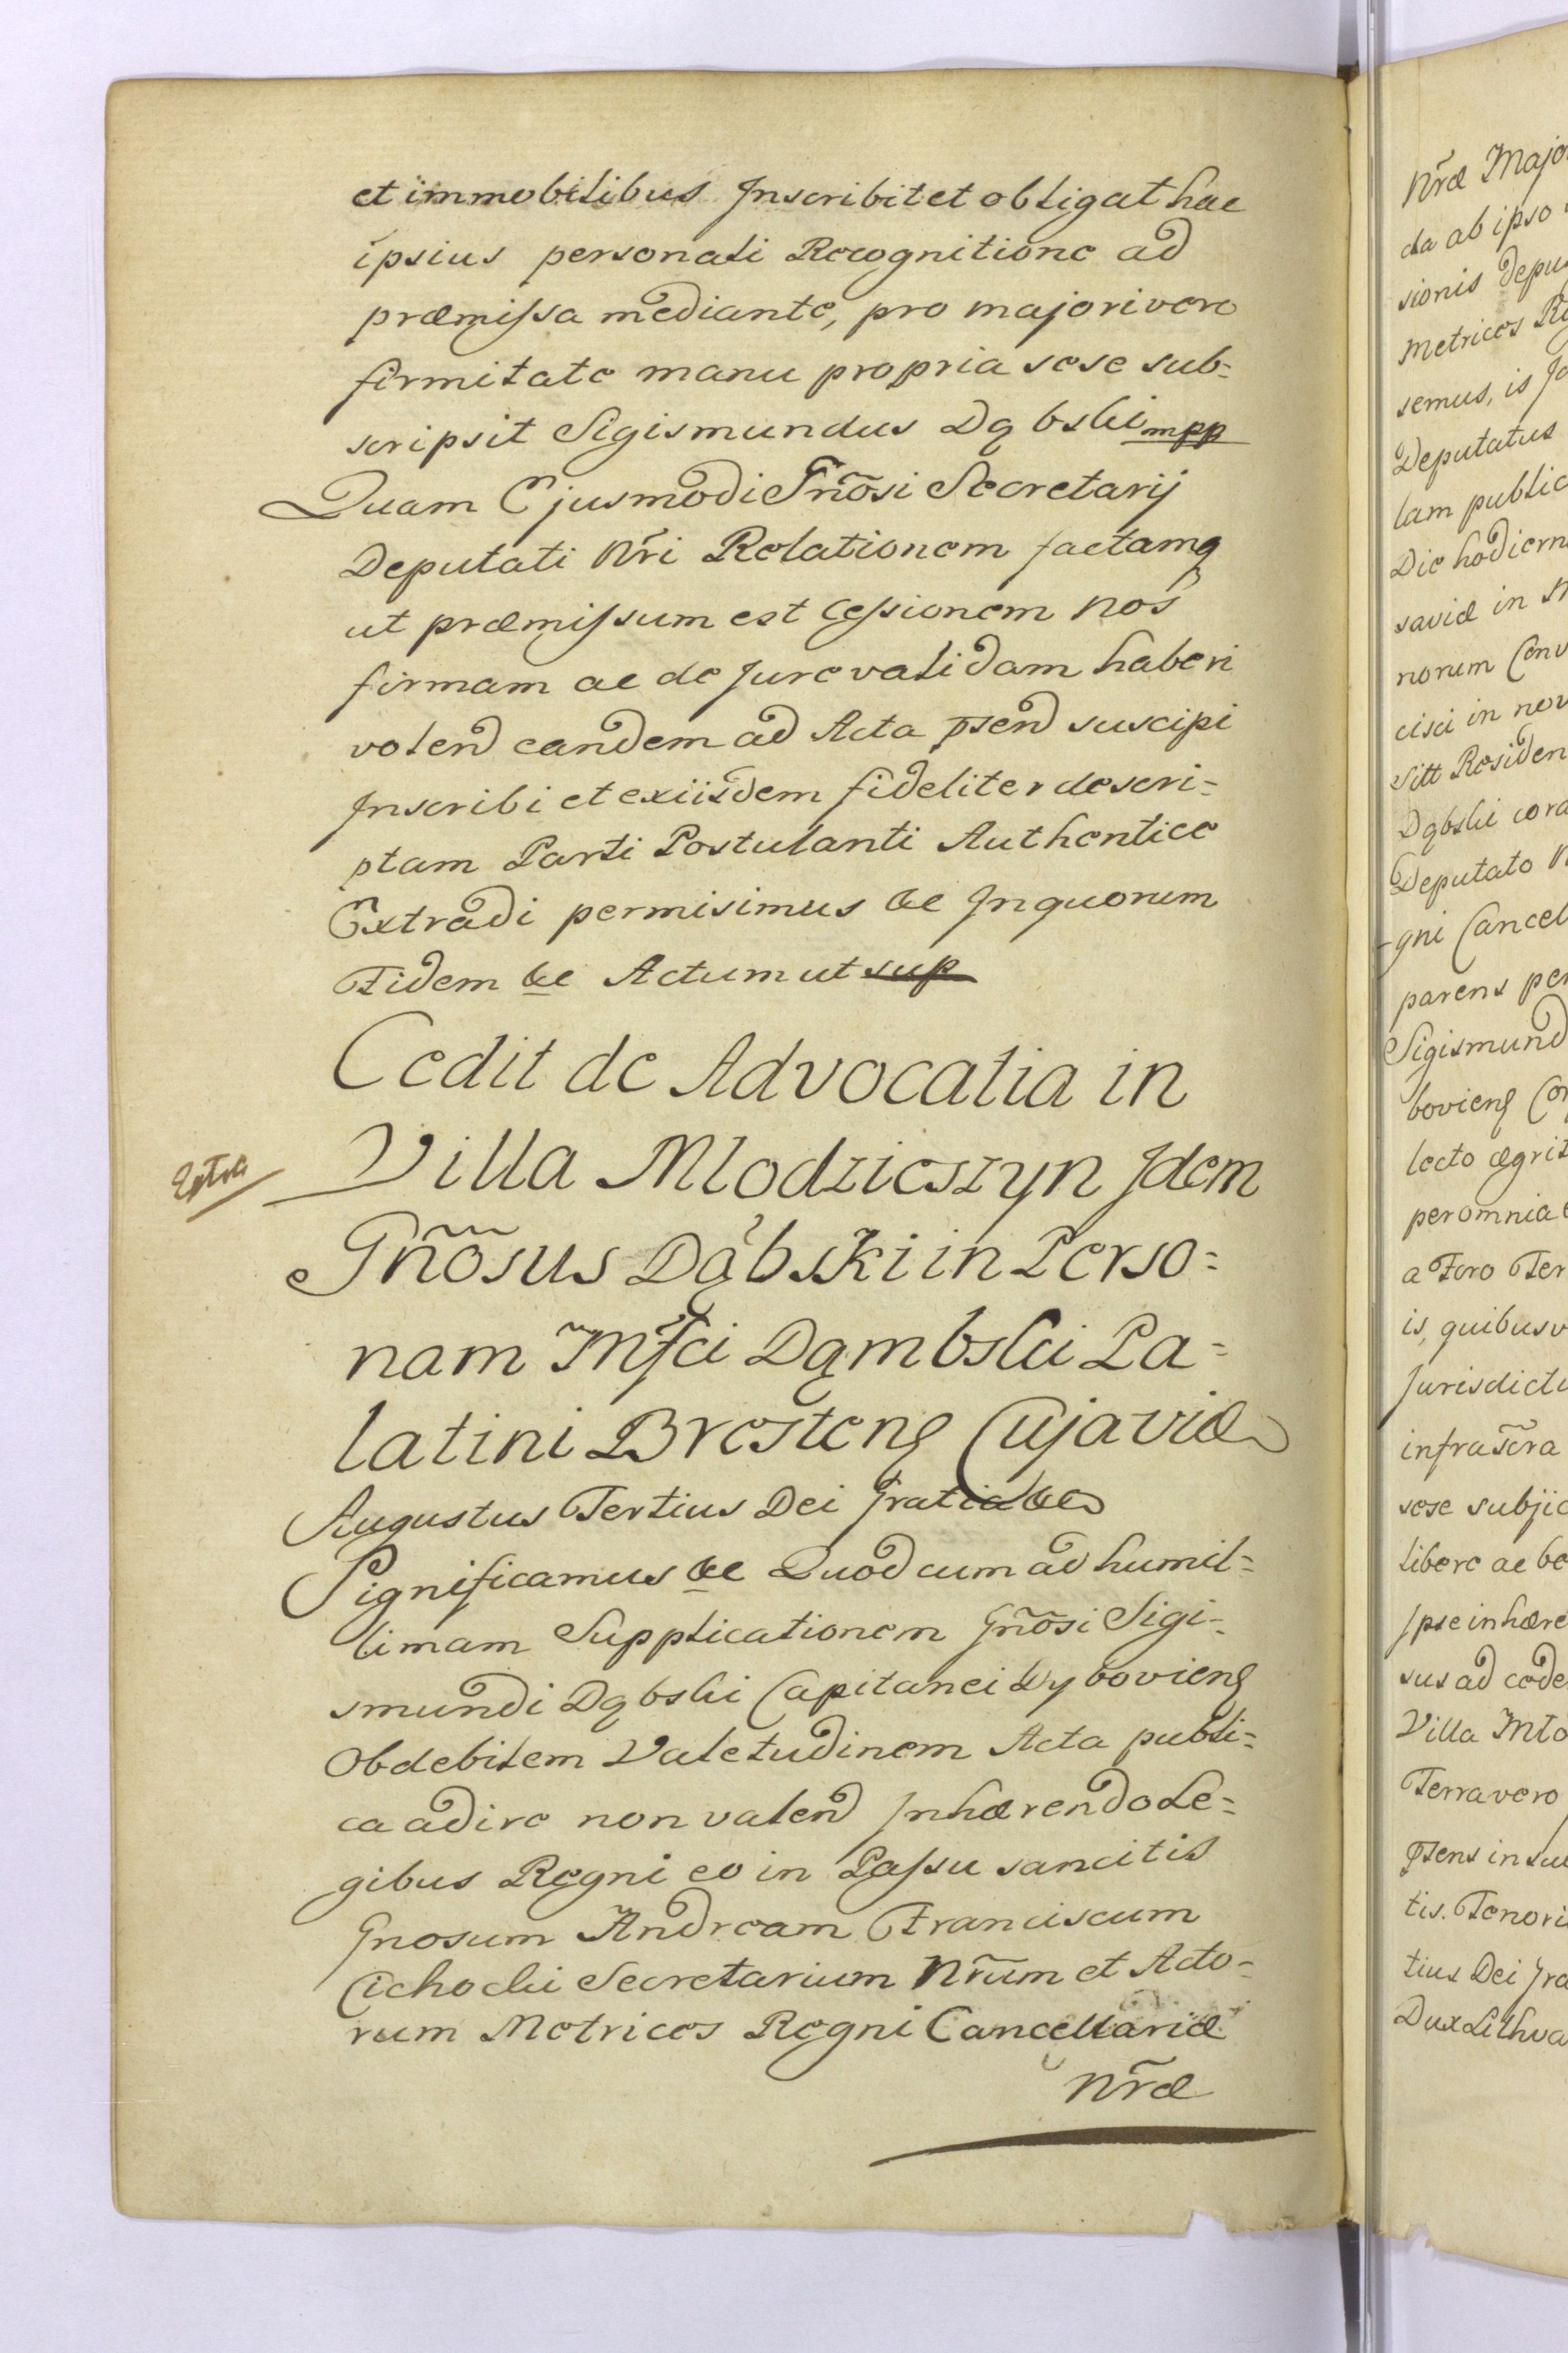 et immobilibus Inscribit et obligat hac
ipsius personali Recognitione ad
præmissa mediante, pro majori vero
firmitate manu propria sese sub=
scripsit Sigismundus Dąbski mpp
Quam Ejusmodi Gñosi Secretarij
Deputati Nri Relationem factamq
ut præmissum est Cessionem Nos
firmam ac de Jure validam haberi
volend eandem ad Acta psend suscipi
Inscribi et exiisdem fideliter descri=
ptam Parti Postulanti Authentice
Extradi permisimus &c Inquorum
Fidem &c Actum ut sup
Cedit de Advocatia in
Villa Mlodzieszyn Idem
Gñosus Dąbski in Perso=
nam Mfci Dąmbski Pa=
latini Brestens Cujaviæ
Extra
Augustus Tertius Dei Gratia &c
Significamus &c Quod cum ad humil=
limam Supplicationem Gñosi Sigi=
smundi Dąbski Capitanei Dyboviens
Ob debilem Valetudinem Acta publi=
ca adire non valend Inhærendo Le=
gibus Regni eo in Passu sancitis
Gnosum Andream Franciscum
Cichocki Secretarium Nrum et Acto=
rum Metrices Regni Cancellariæ
Nræ
Nræ Majo
da ab ipso
sionis Depu
Metrices Re
semus, is Ja
Deputatus
lam public
Die hodiern
saviæ in
norum Conv
cisci in nov
Sitt Residen
Dąbski cora
Deputato N
gni Cancel
parens per
Sigismund
boviens Cor
lecto ægrit
per omnia
a Foro Ter
is, quibusv
Jurisdicti
infrascra
sese subjic
libere ac be
Ipse inhære
sus ad eode
Villa Mło
Terra vero
psens in su
tis. Tenoris
tius Dei Gra
Dux Lithva